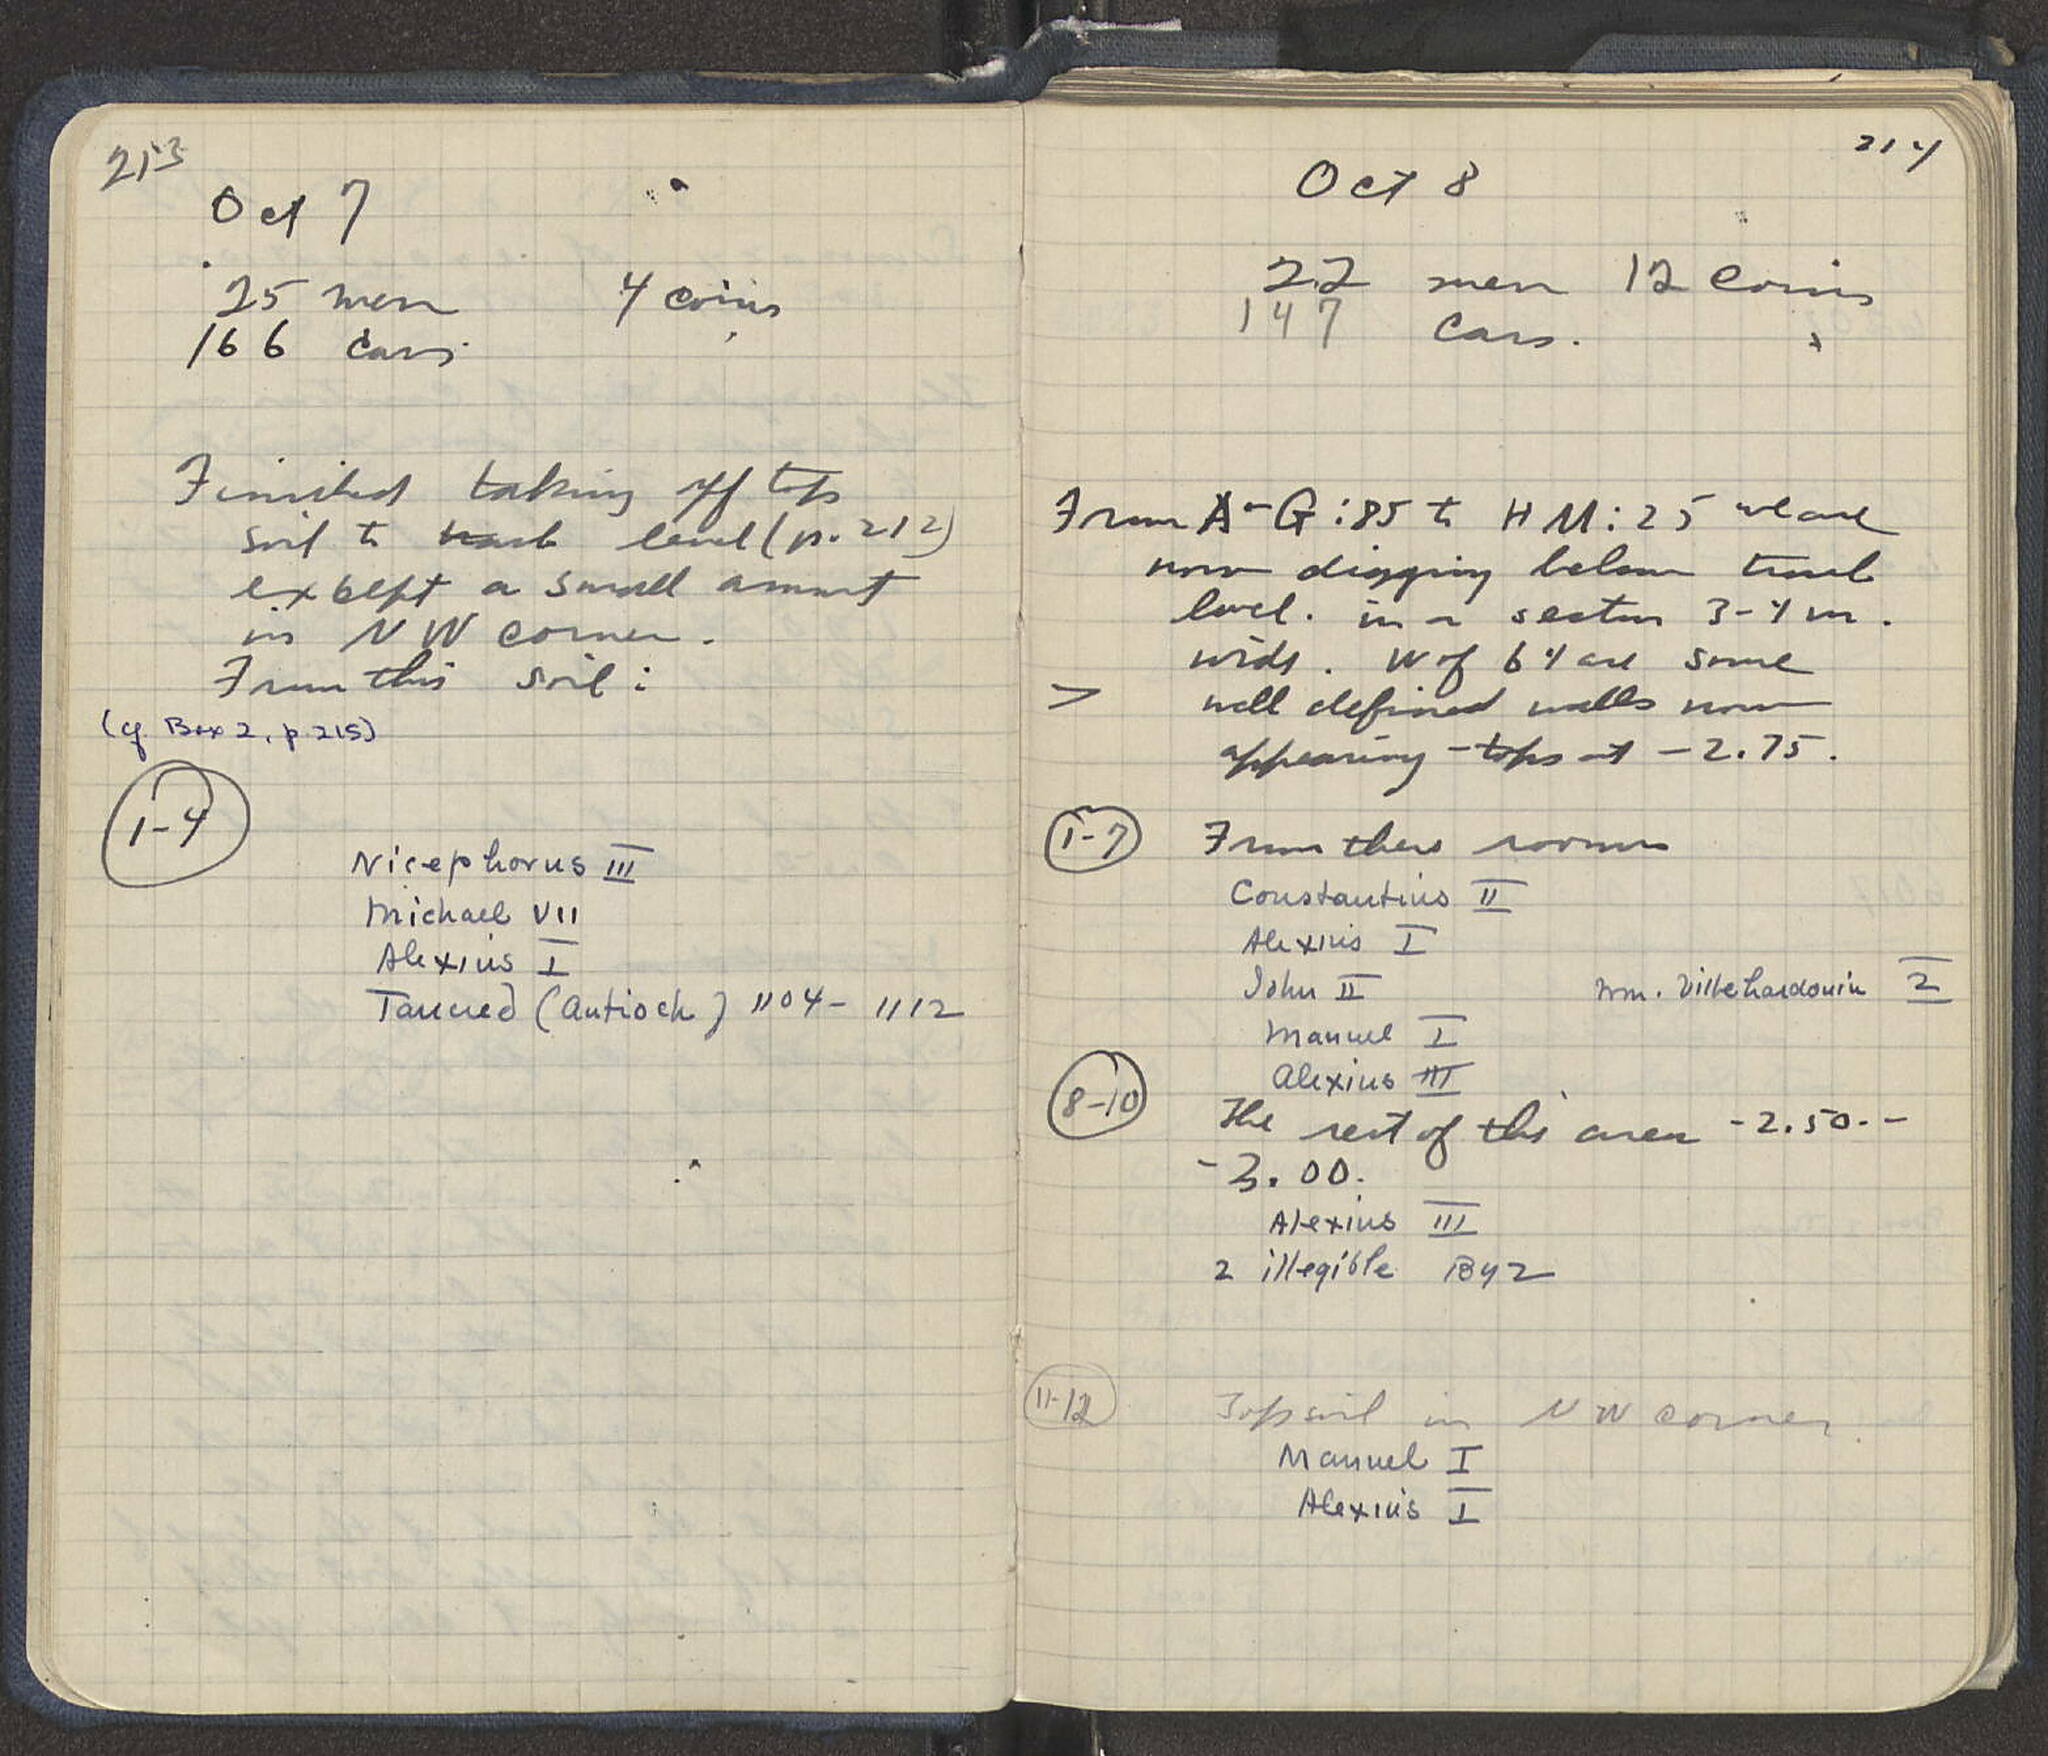 213
Oct 7
25 men 4 coins
166 cars.
Finished taking off top
soil to track level (p. 212)
except a small amount
in NW corner.
From this soil:
(cf. Box 2, p 215)
1-4
Nicephorus III
Michael VII
Alexius I
Tancred (Antioch) 1104-1112
214
Oct 8
22 men 12 coins
147 cars.
From A-G:85 to HM:25 we are
now digging below track
level. in a sector 3-4 m.
wide. W of 64 are some
> well defined walls now
appearing - tops at -2.75.
1-7 From these rooms
Constantius II
Alexius I
John II Wm. Villehardouin 2
Manuel I
Alexius III
8-10
The rest of this area -2.50--
-3.00.
Alexius III
2 illegible Byz
11-12 Topsoil in NW corner.
Manuel I
Alexius I